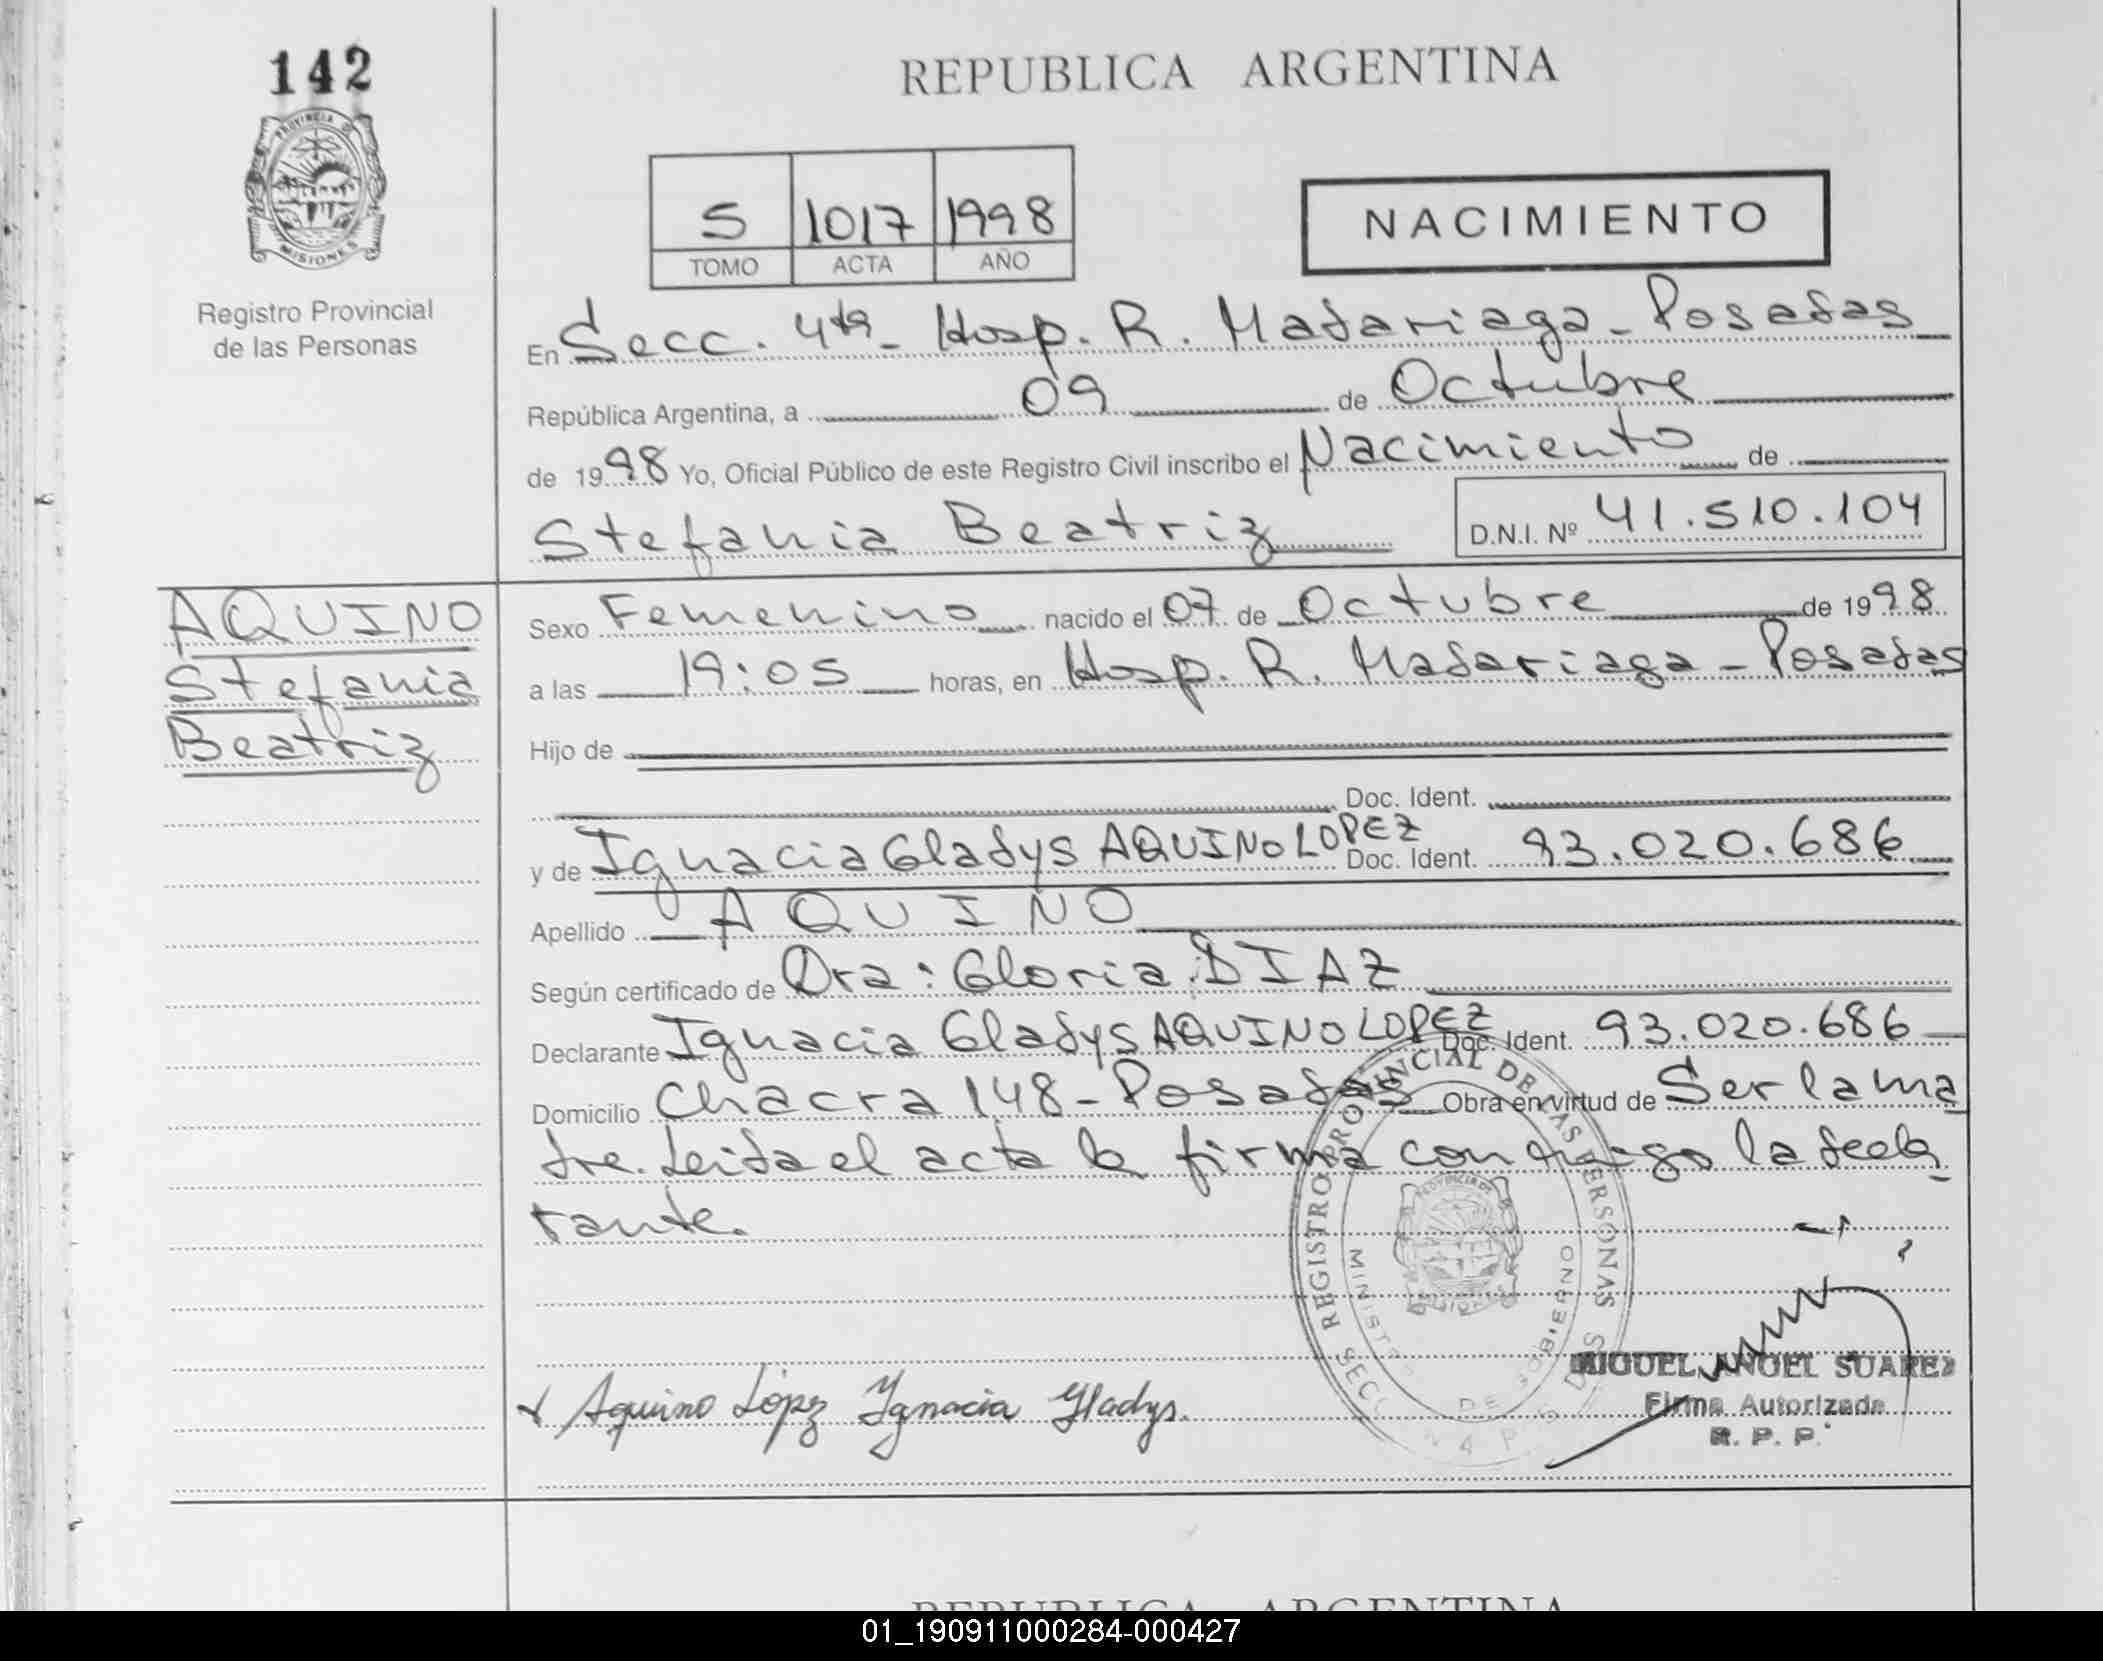 142
REPUBLICA ARGENTINA
PROVINCIA DE
MISIONES
Registro Provincial
de las Personas
5 1017 1998
TOMO ACTA AÑO
NACIMIENTO
En Secc. 4ta - Hosp. R. Madariaga - Posadas
República Argentina, a 09 de Octubre
de 1998 Yo, Oficial Público de este Registro Civil inscribo el Nacimiento de
Stefania Beatriz D.N.I. Nº 41.510.104
AQUINO
Stefania
Beatriz
Sexo Femenino nacido el 07 de Octubre de 1998
a las 19:05 horas, en Hosp. R. Madariaga - Posadas
Hijo de
Doc. Ident.
y de Ignacia Gladys AQUINO LOPEZ Doc. Ident. 93.020.686
Apellido AQUINO
Según certificado de Dra: Gloria DIAZ
Declarante Ignacia Gladys AQUINO LOPEZ Doc. Ident. 93.020.686
Domicilio Chacra 148 - Posadas Obra en virtud de Ser la ma
dre. Leida el acta la firma conmigo la decla
rante.
REGISTRO PROVINCIAL DE LAS PERSONAS
MINISTERIO DE GOBIERNO
MIGUEL ANGEL SUAREZ
Firma Autorizada
R. P. P.
Aquino López Ignacia Gladys.
REPUBLICA ARGENTINA
01_190911000284-000427